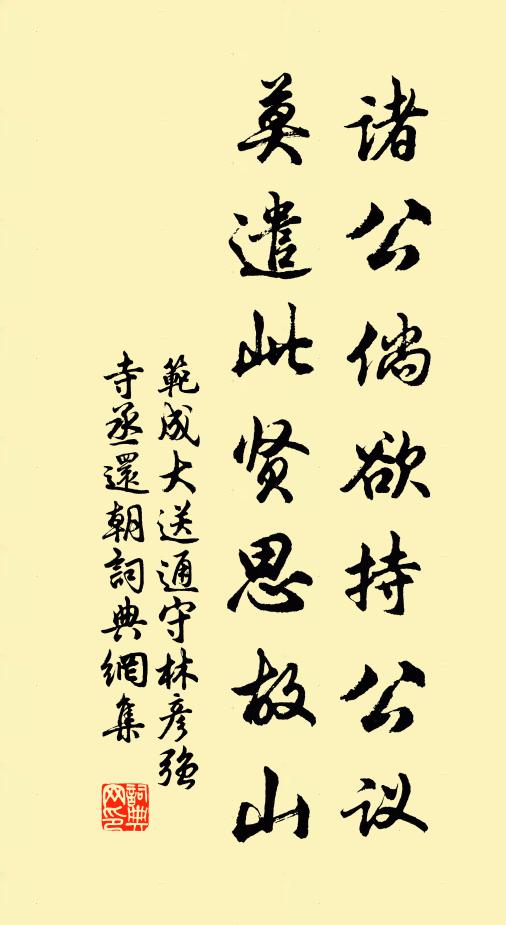 诸公倘欲持公议
莫遣此贤思故山
範成大送通守林彦强
寺丞還朝詞典網集
詞典
网印